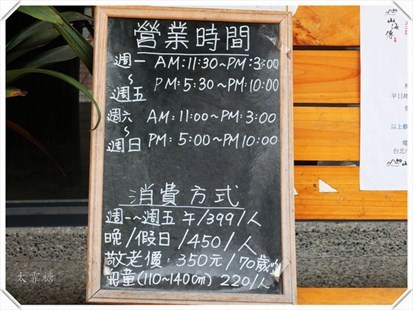 營業時間
週一 AM:11:30~PM:3:00
~
週五 PM:5:30~PM10:00
週六 AM:11:00~PM:3:00
~
週日 PM:5:00~PM10:00
消費方式
週一~週五 午/399/人
晚/假日/450/人
敬老價:350元/70歲
兒童(110~140cm) 220/人
山海傳
平日
以上
電
台北